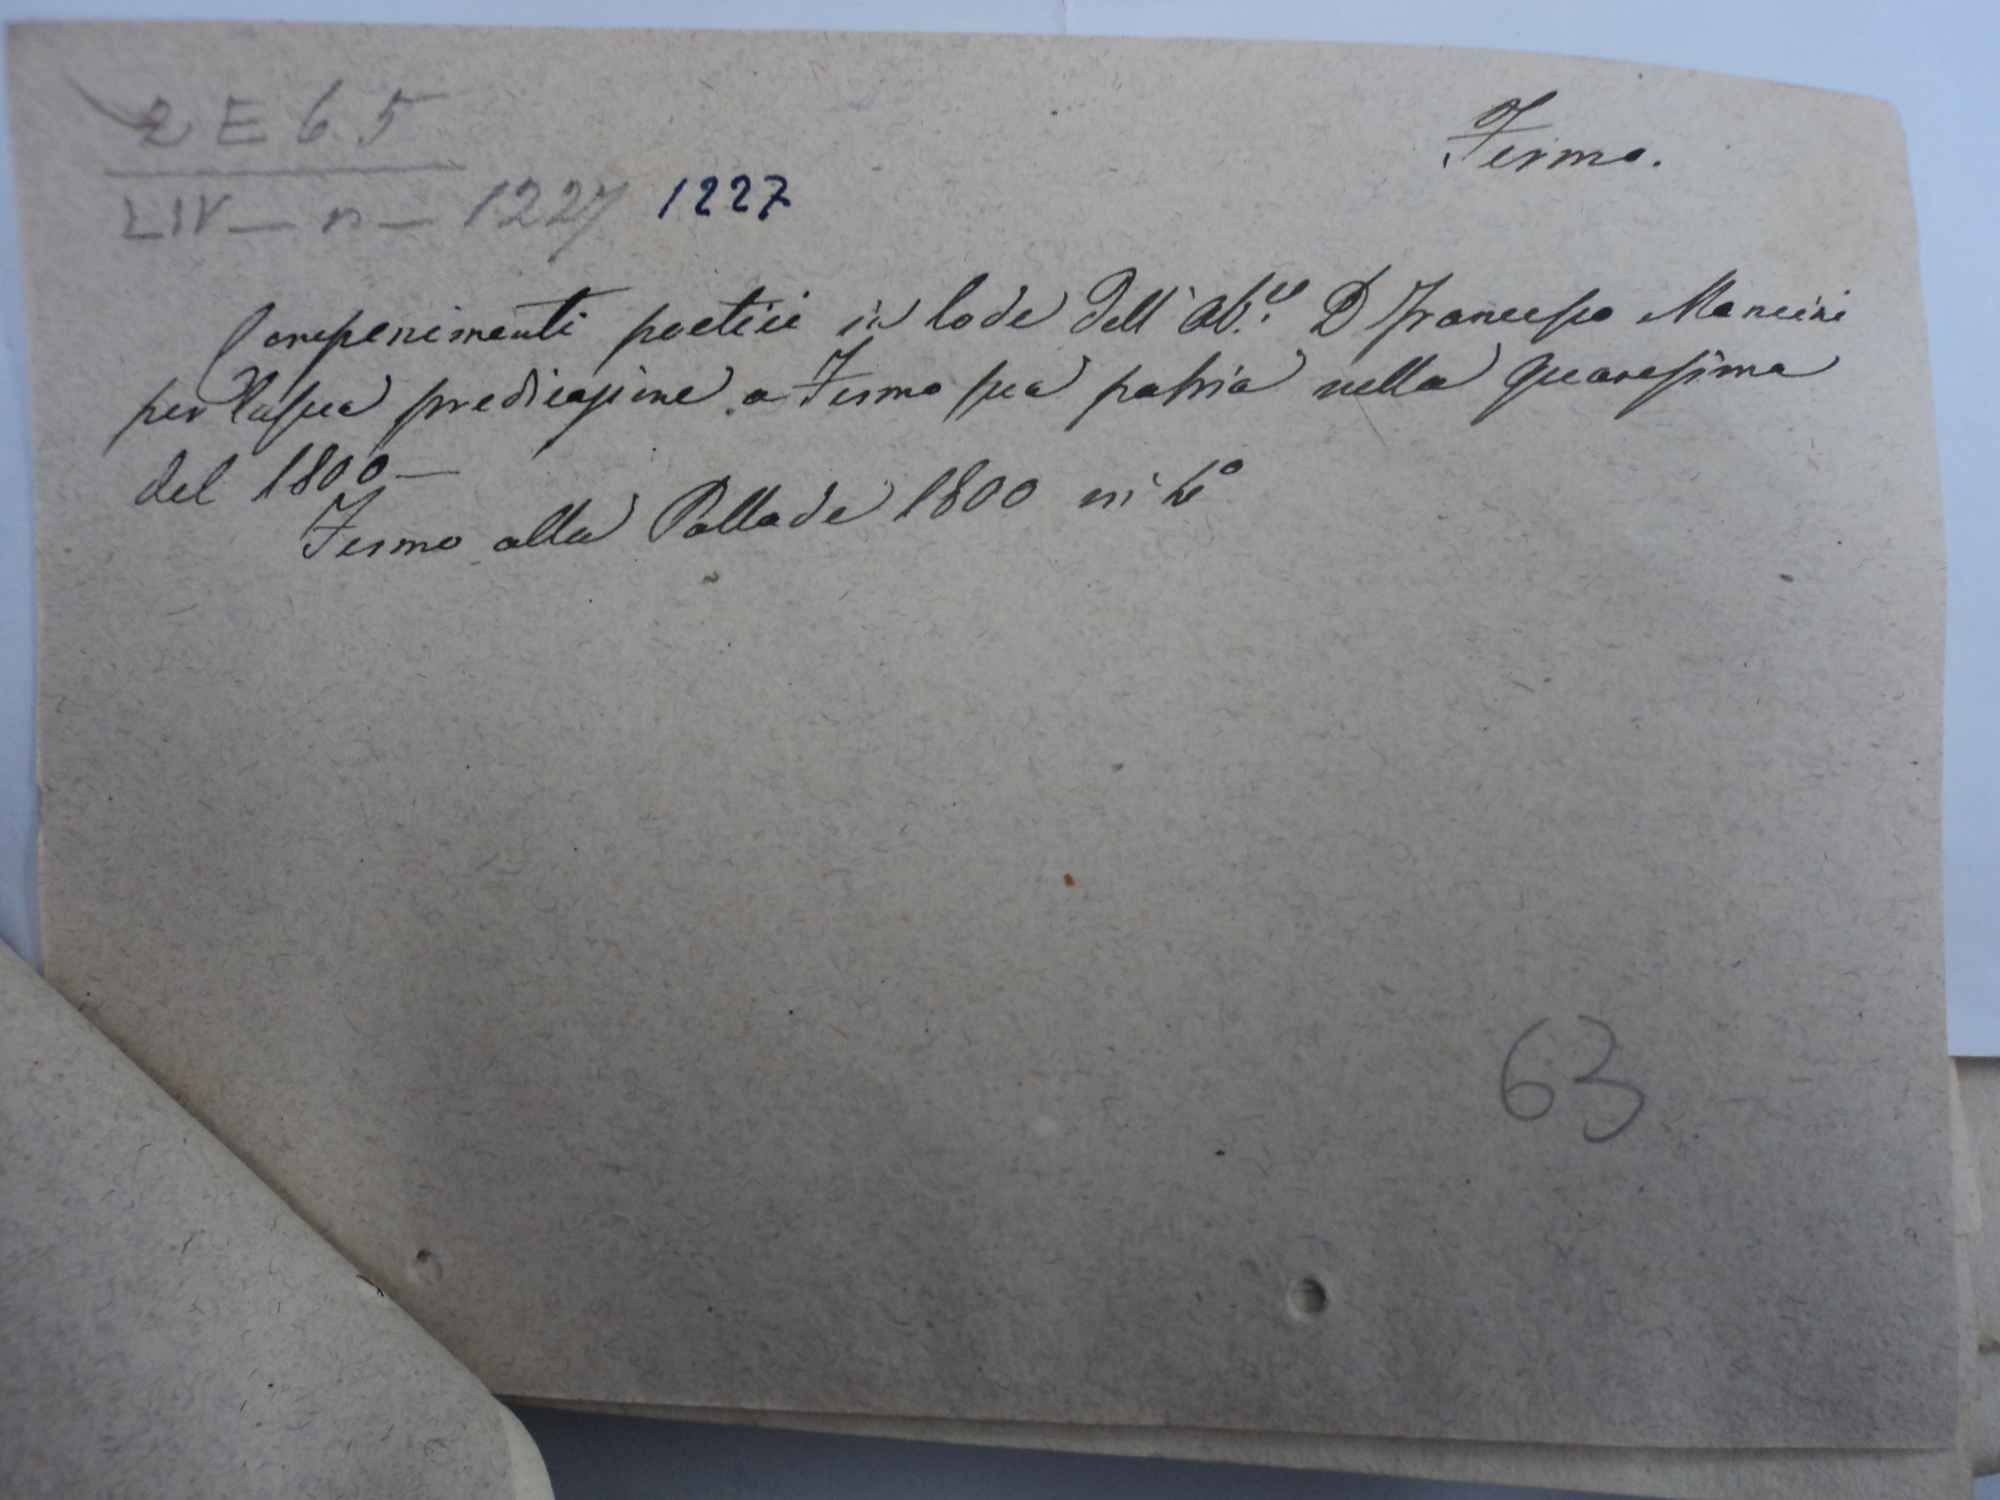 2 E 6 5
Fermo.
LIV - n - 1227 1227
Componimenti poetici in lode dell' Ab.e D Francesco Mancini
per la sua predicazione a Fermo sua patria nella quaresima
del 1800 -
Fermo alla Pallade 1800 in 4°
63